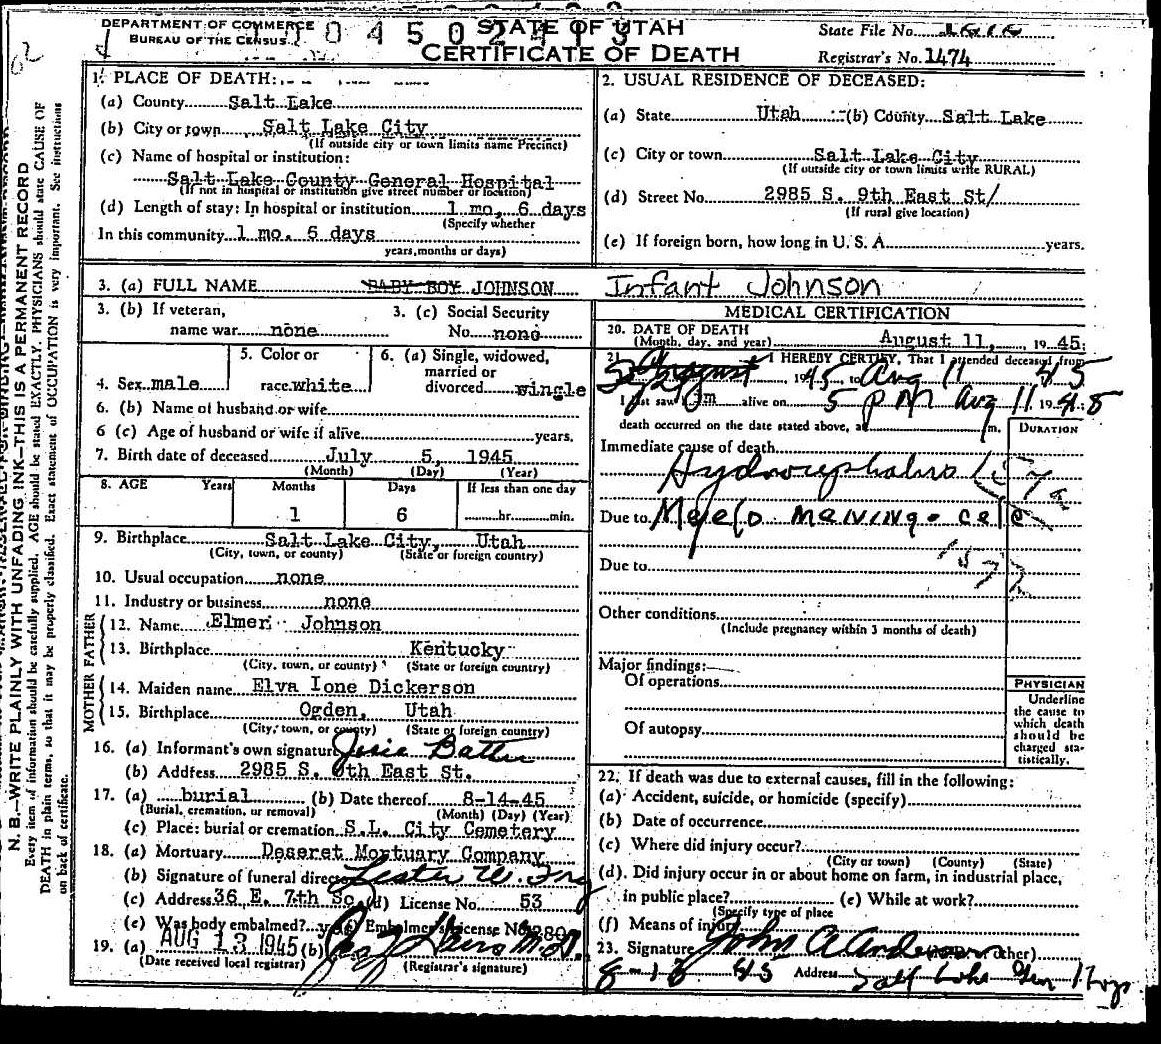 DEPARTMENT OF COMMERCE
BUREAU OF THE CENSUS
STATE OF UTAH
CERTIFICATE OF DEATH
State File No.
Registrar's No. 1474
1. PLACE OF DEATH:
(a) County Salt Lake
(b) City or town Salt Lake City
(If outside city or town limits name Precinct)
(c) Name of hospital or institution:
Salt Lake County General Hospital
(If not in hospital or institution give street number or location)
(d) Length of stay: In hospital or institution 1 mo, 6 days
(Specify whether
In this community 1 mo. 6 days
years, months or days)
2. USUAL RESIDENCE OF DECEASED:
(a) State Utah (b) County Salt Lake
(c) City or town Salt Lake City
(If outside city or town limits write RURAL)
(d) Street No. 2985 S. 9th East St/
(If rural give location)
(e) If foreign born, how long in U. S. A. years.
3. (a) FULL NAME BABY BOY JOHNSON Infant Johnson
3. (b) If veteran,
name war none
3. (c) Social Security
No. none
4. Sex male
5. Color or
race white
6. (a) Single, widowed,
married or
divorced single
6. (b) Name of husband or wife
6 (c) Age of husband or wife if alive years,
7. Birth date of deceased July 5, 1945
(Month) (Day) (Year)
8. AGE Years Months Days If less than one day
1 6 hr. min.
9. Birthplace Salt Lake City, Utah
(City, town, or county) (State or foreign country)
10. Usual occupation none
11. Industry or business none
FATHER
12. Name Elmer Johnson
13. Birthplace Kentucky
(City, town, or county) (State or foreign country)
MOTHER
14. Maiden name Elva Ione Dickerson
15. Birthplace Ogden, Utah
(City, town, or county) (State or foreign country)
16. (a) Informant's own signature
(b) Address 2985 S. 9th East St.
17. (a) burial (b) Date thereof 8-14-45
(Burial, cremation, or removal) (Month) (Day) (Year)
(c) Place: burial or cremation S.L. City Cemetery
18. (a) Mortuary Deseret Mortuary Company
(b) Signature of funeral director
(c) Address 36 E. 7th So (d) License No. 53
(e) Was body embalmed? (f) Embalmer's License No.
19. (a) AUG 13 1945 (b)
(Date received local registrar) (Registrar's signature)
MEDICAL CERTIFICATION
20. DATE OF DEATH
(Month, day, and year) August 11, 1945
21. I HEREBY CERTIFY, That I attended deceased from
August 1945, to Aug 11 45
I last saw him alive on 5 PM Aug 11 1945
death occurred on the date stated above, at m.
DURATION
Immediate cause of death
Hydrocephalus
Due to
Due to
Other conditions
(Include pregnancy within 3 months of death)
Major findings:
Of operations
Of autopsy
PHYSICIAN
Underline
the cause to
which death
should be
charged sta-
tistically.
22. If death was due to external causes, fill in the following:
(a) Accident, suicide, or homicide (specify)
(b) Date of occurrence
(c) Where did injury occur?
(City or town) (County) (State)
(d). Did injury occur in or about home on farm, in industrial place,
in public place? (e) While at work?
(Specify type of place
(f) Means of injury
23. Signature John A Anderson (M.D. or other)
Address Salt Lake Gen Hosp
N. B.—WRITE PLAINLY WITH UNFADING INK—THIS IS A PERMANENT RECORD
Every item of information should be carefully supplied. AGE should be stated EXACTLY. PHYSICIANS should state CAUSE OF
DEATH in plain terms, so that it may be properly classified. Exact statement of OCCUPATION is very important. See instructions
on back of certificate.